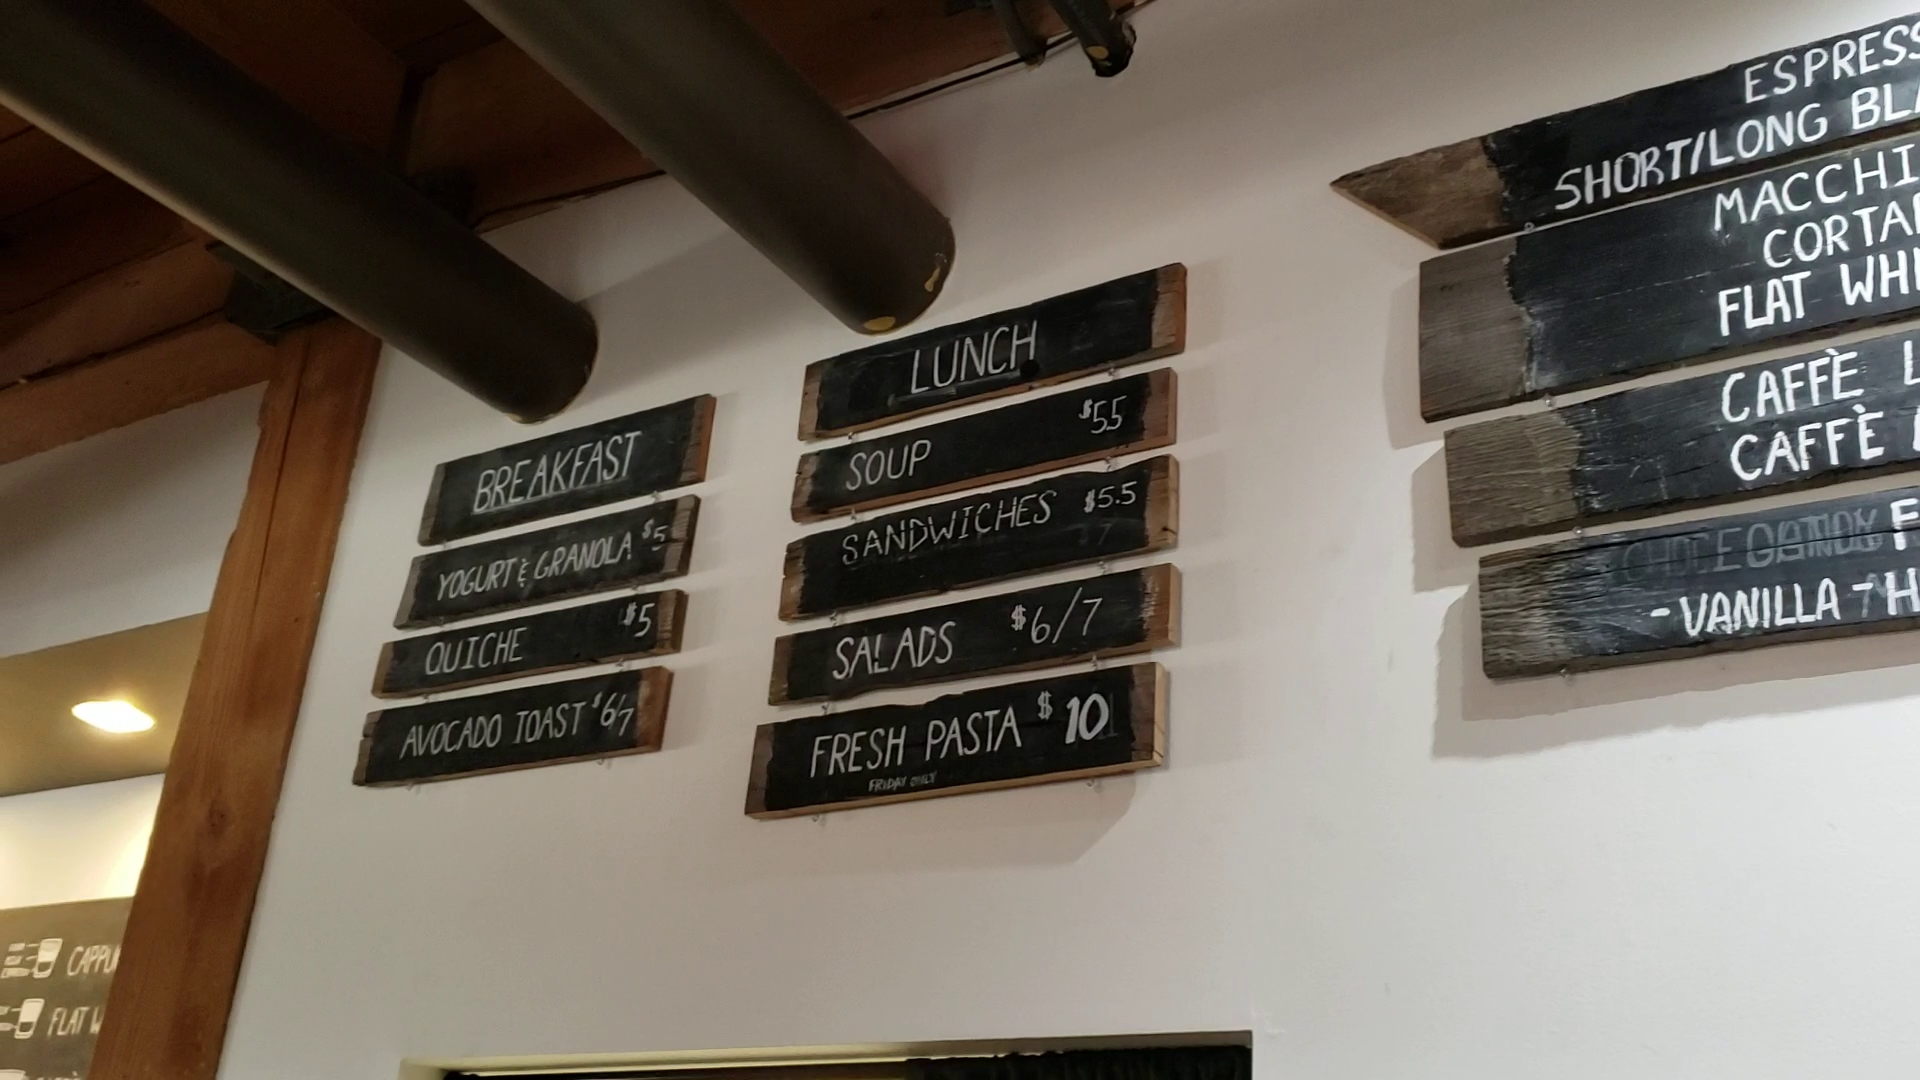 BREAKFAST
YOGURT & GRANOLA $5
QUICHE $5
AVOCADO TOAST $6/7
LUNCH
SOUP $5.5
SANDWICHES $5.5
SALADS $6/7
FRESH PASTA $10
FRIDAY ONLY
ESPRESS
SHORT/LONG BLA
MACCHI
CORTA
FLAT WHI
CAFFÈ L
CAFFÈ
F
- VANILLA - H
CAPPU
FLAT W